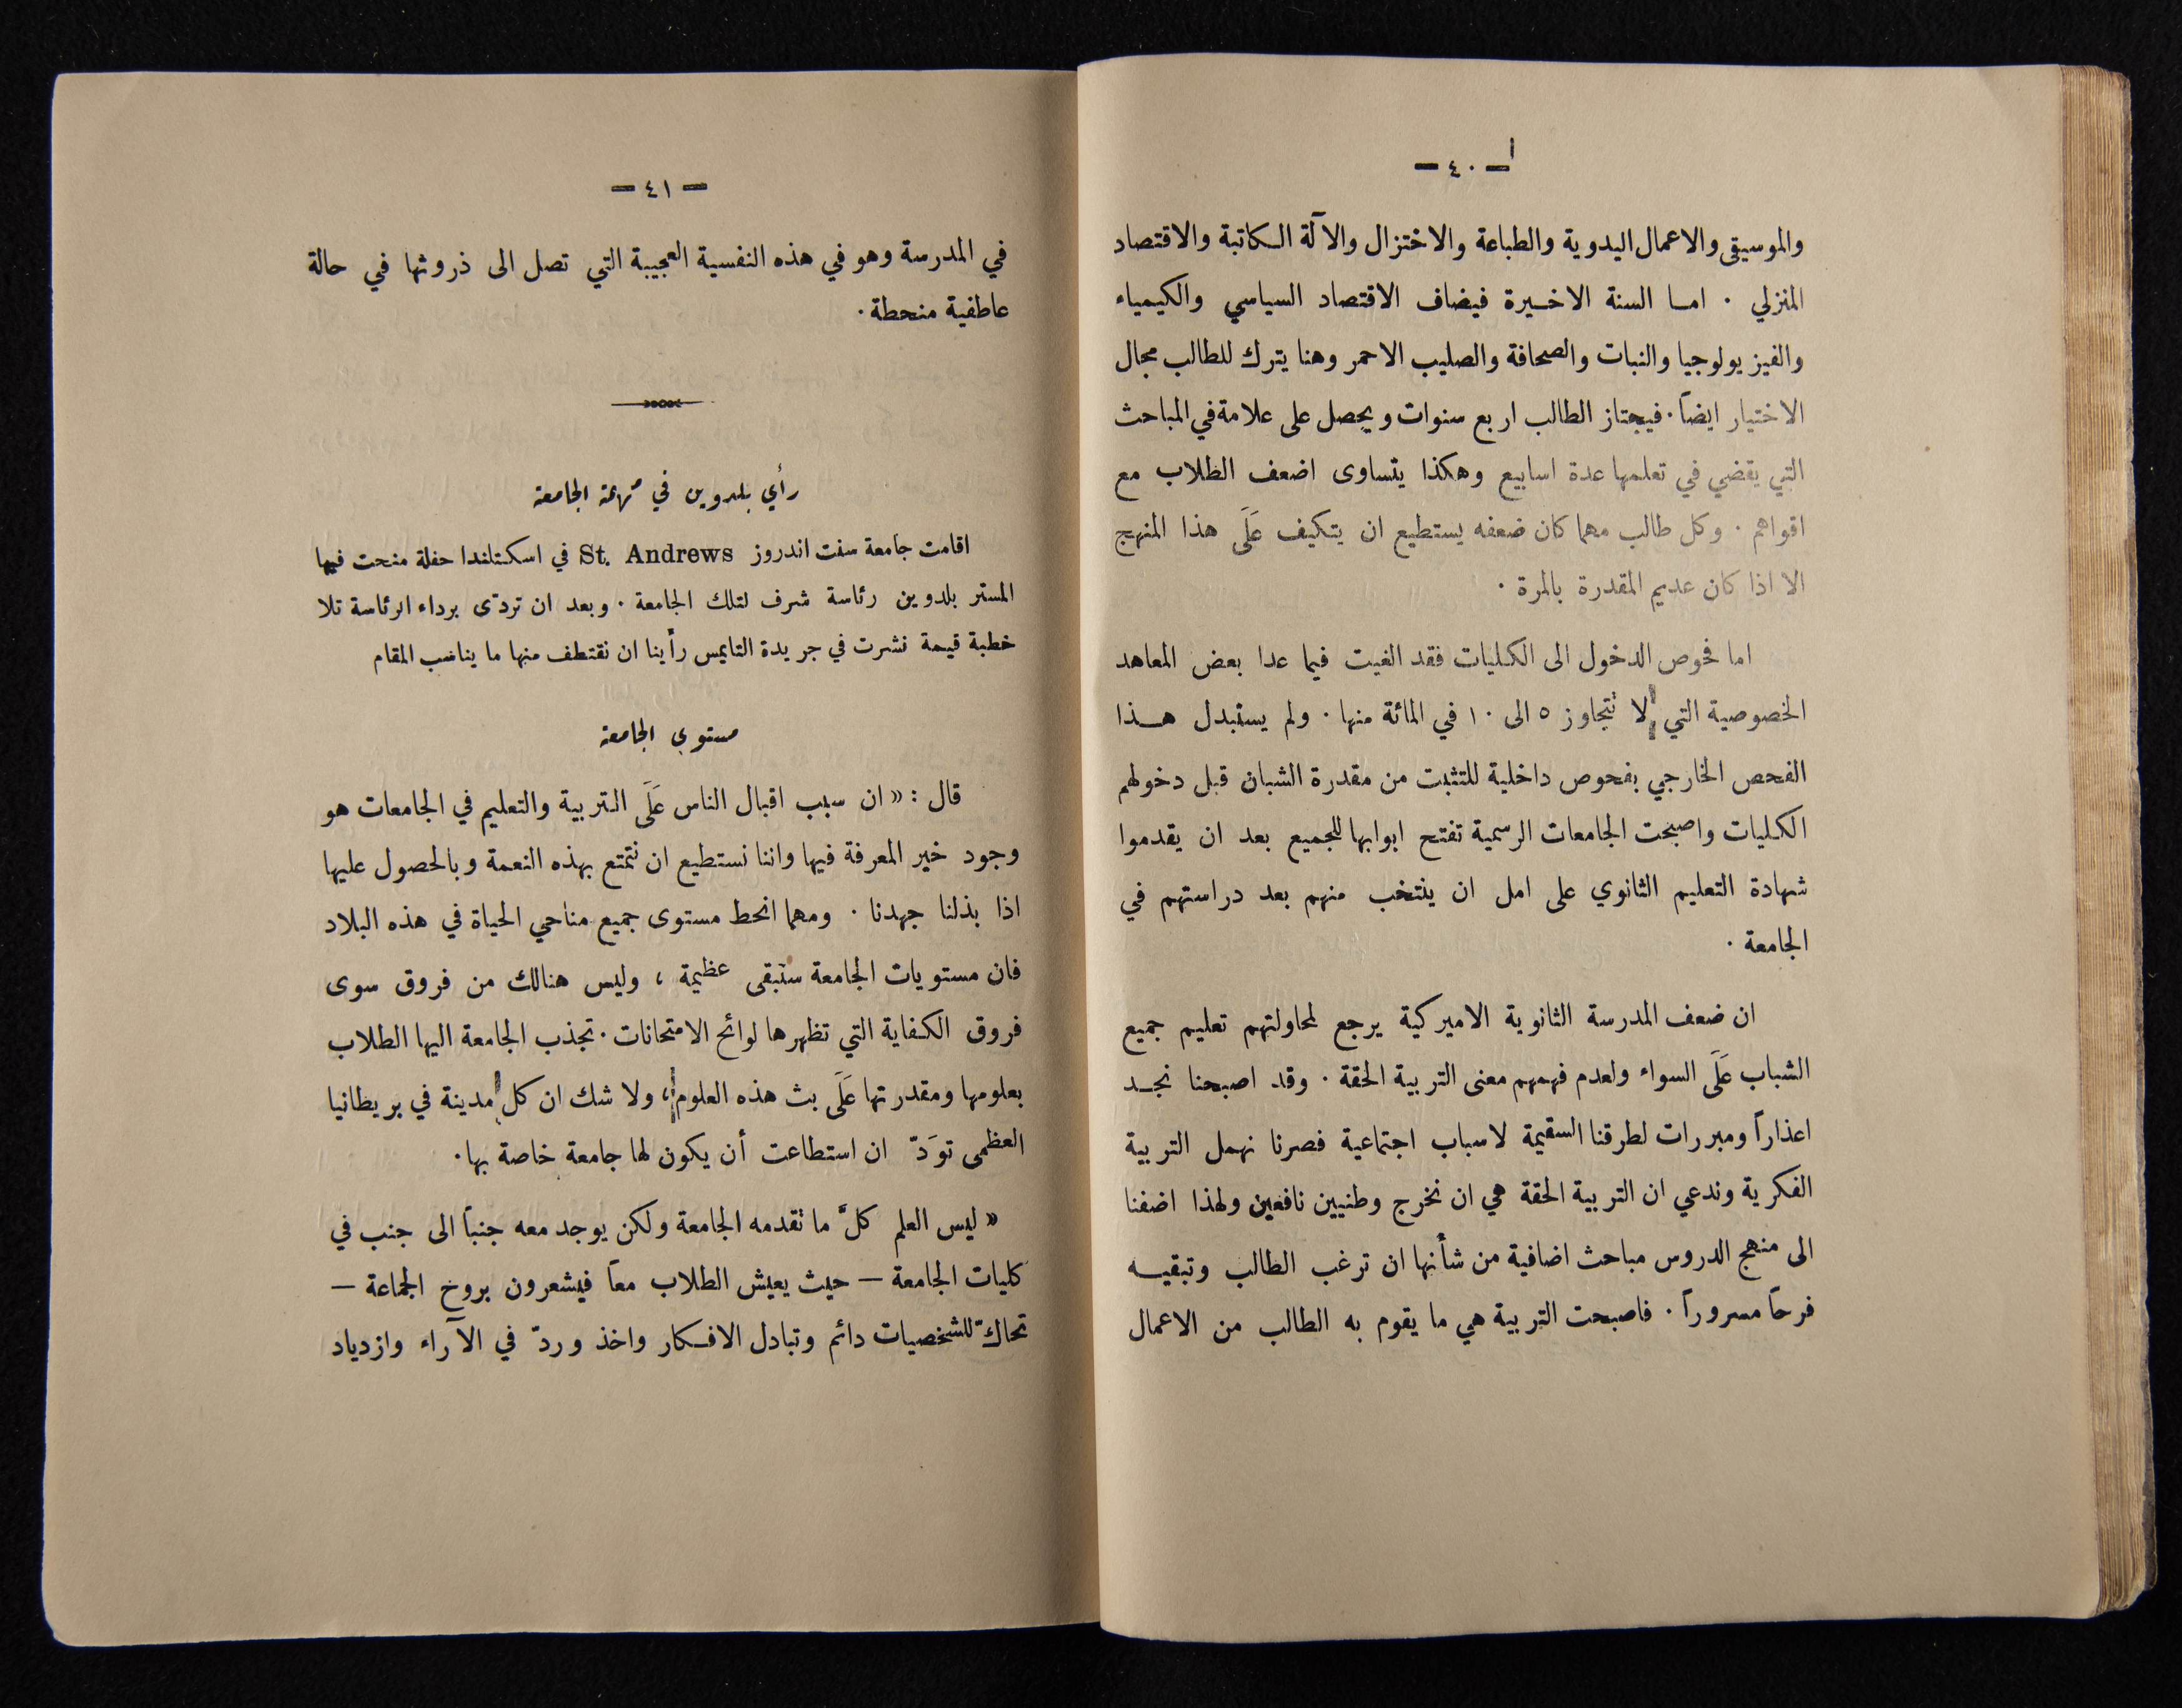 — ٤٠ —
والموسيقى والاعمال اليدوية والطباعة والاختزال والآلة الكاتبة والاقتصاد
المنزلي . اما السنة الاخيرة فيضاف الاقتصاد السياسي والكيمياء
والفيزيولوجيا والنبات والصحافة والصليب الاحمر وهنا يترك للطالب مجال
الاختيار ايضاً . فيجتاز الطالب اربع سنوات ويحصل على علامة في المباحث
التي يقضي في تعلمها عدة اسابيع وهكذا يتساوى اضعف الطلاب مع
اقواهم . وكل طالب مهما كان ضعفه يستطيع ان يتكيف عَلَى هذا المنهج
الا اذا كان عديم المقدرة بالمرة .
اما فحوص الدخول الى الكليات فقد الغيت فيما عدا بعض المعاهد
الخصوصية التي لا تتجاوز ٥ الى ١٠ في المائة منها . ولم يستبدل هذا
الفحص الخارجي بفحوص داخلية للتثبت من مقدرة الشبان قبل دخولهم
الكليات واصبحت الجامعات الرسمية تفتح ابوابها للجميع بعد ان يقدموا
شهادة التعليم الثانوي على امل ان ينتخب منهم بعد دراستهم في
الجامعة .
ان ضعف المدرسة الثانوية الاميركية يرجع لمحاولتهم تعليم جميع
الشباب عَلَى السواء ولعدم فهمهم معنى التربية الحقة . وقد اصبحنا نجد
اعذاراً ومبررات لطرقنا السقيمة لاسباب اجتماعية فصرنا نهمل التربية
الفكرية وندعي ان التربية الحقة هي ان نخرج وطنيين نافعين ولهذا اضفنا
الى منهج الدروس مباحث اضافية من شأنها ان ترغب الطالب وتبقيه
فرحاً مسروراً . فاصبحت التربية هي ما يقوم به الطالب من الاعمال
— ٤١ —
في المدرسة وهو في هذه النفسية العجيبة التي تصل الى ذروتها في حالة
عاطفية منحطة .
رأي بلدوين في مهمة الجامعة
اقامت جامعة سنت اندروز St. Andrews في اسكتلندا حفلة منحت فيها
المستر بلدوين رئاسة شرف لتلك الجامعة . وبعد ان تردّى برداء الرئاسة تلا
خطبة قيمة نشرت في جريدة التايمس رأينا ان نقتطف منها ما يناسب المقام
مستوى الجامعة
قال : « ان سبب اقبال الناس عَلَى التربية والتعليم في الجامعات هو
وجود خير المعرفة فيها واننا نستطيع ان نتمتع بهذه النعمة وبالحصول عليها
اذا بذلنا جهدنا . ومهما انحط مستوى جميع مناحي الحياة في هذه البلاد
فان مستويات الجامعة ستبقى عظيمة ، وليس هنالك من فروق سوى
فروق الكفاية التي تظهرها لوائح الامتحانات . تجذب الجامعة اليها الطلاب
بعلومها ومقدرتها عَلَى بث هذه العلوم ، ولا شك ان كل مدينة في بريطانيا
العظمى توَدّ ان استطاعت أن يكون لها جامعة خاصة بها .
« ليس العلم كلَّ ما تقدمه الجامعة ولكن يوجد معه جنباً الى جنب في
كليات الجامعة — حيث يعيش الطلاب معاً فيشعرون بروح الجماعة —
تحاكّ للشخصيات دائم وتبادل الافكار واخذ وردّ في الآراء وازدياد